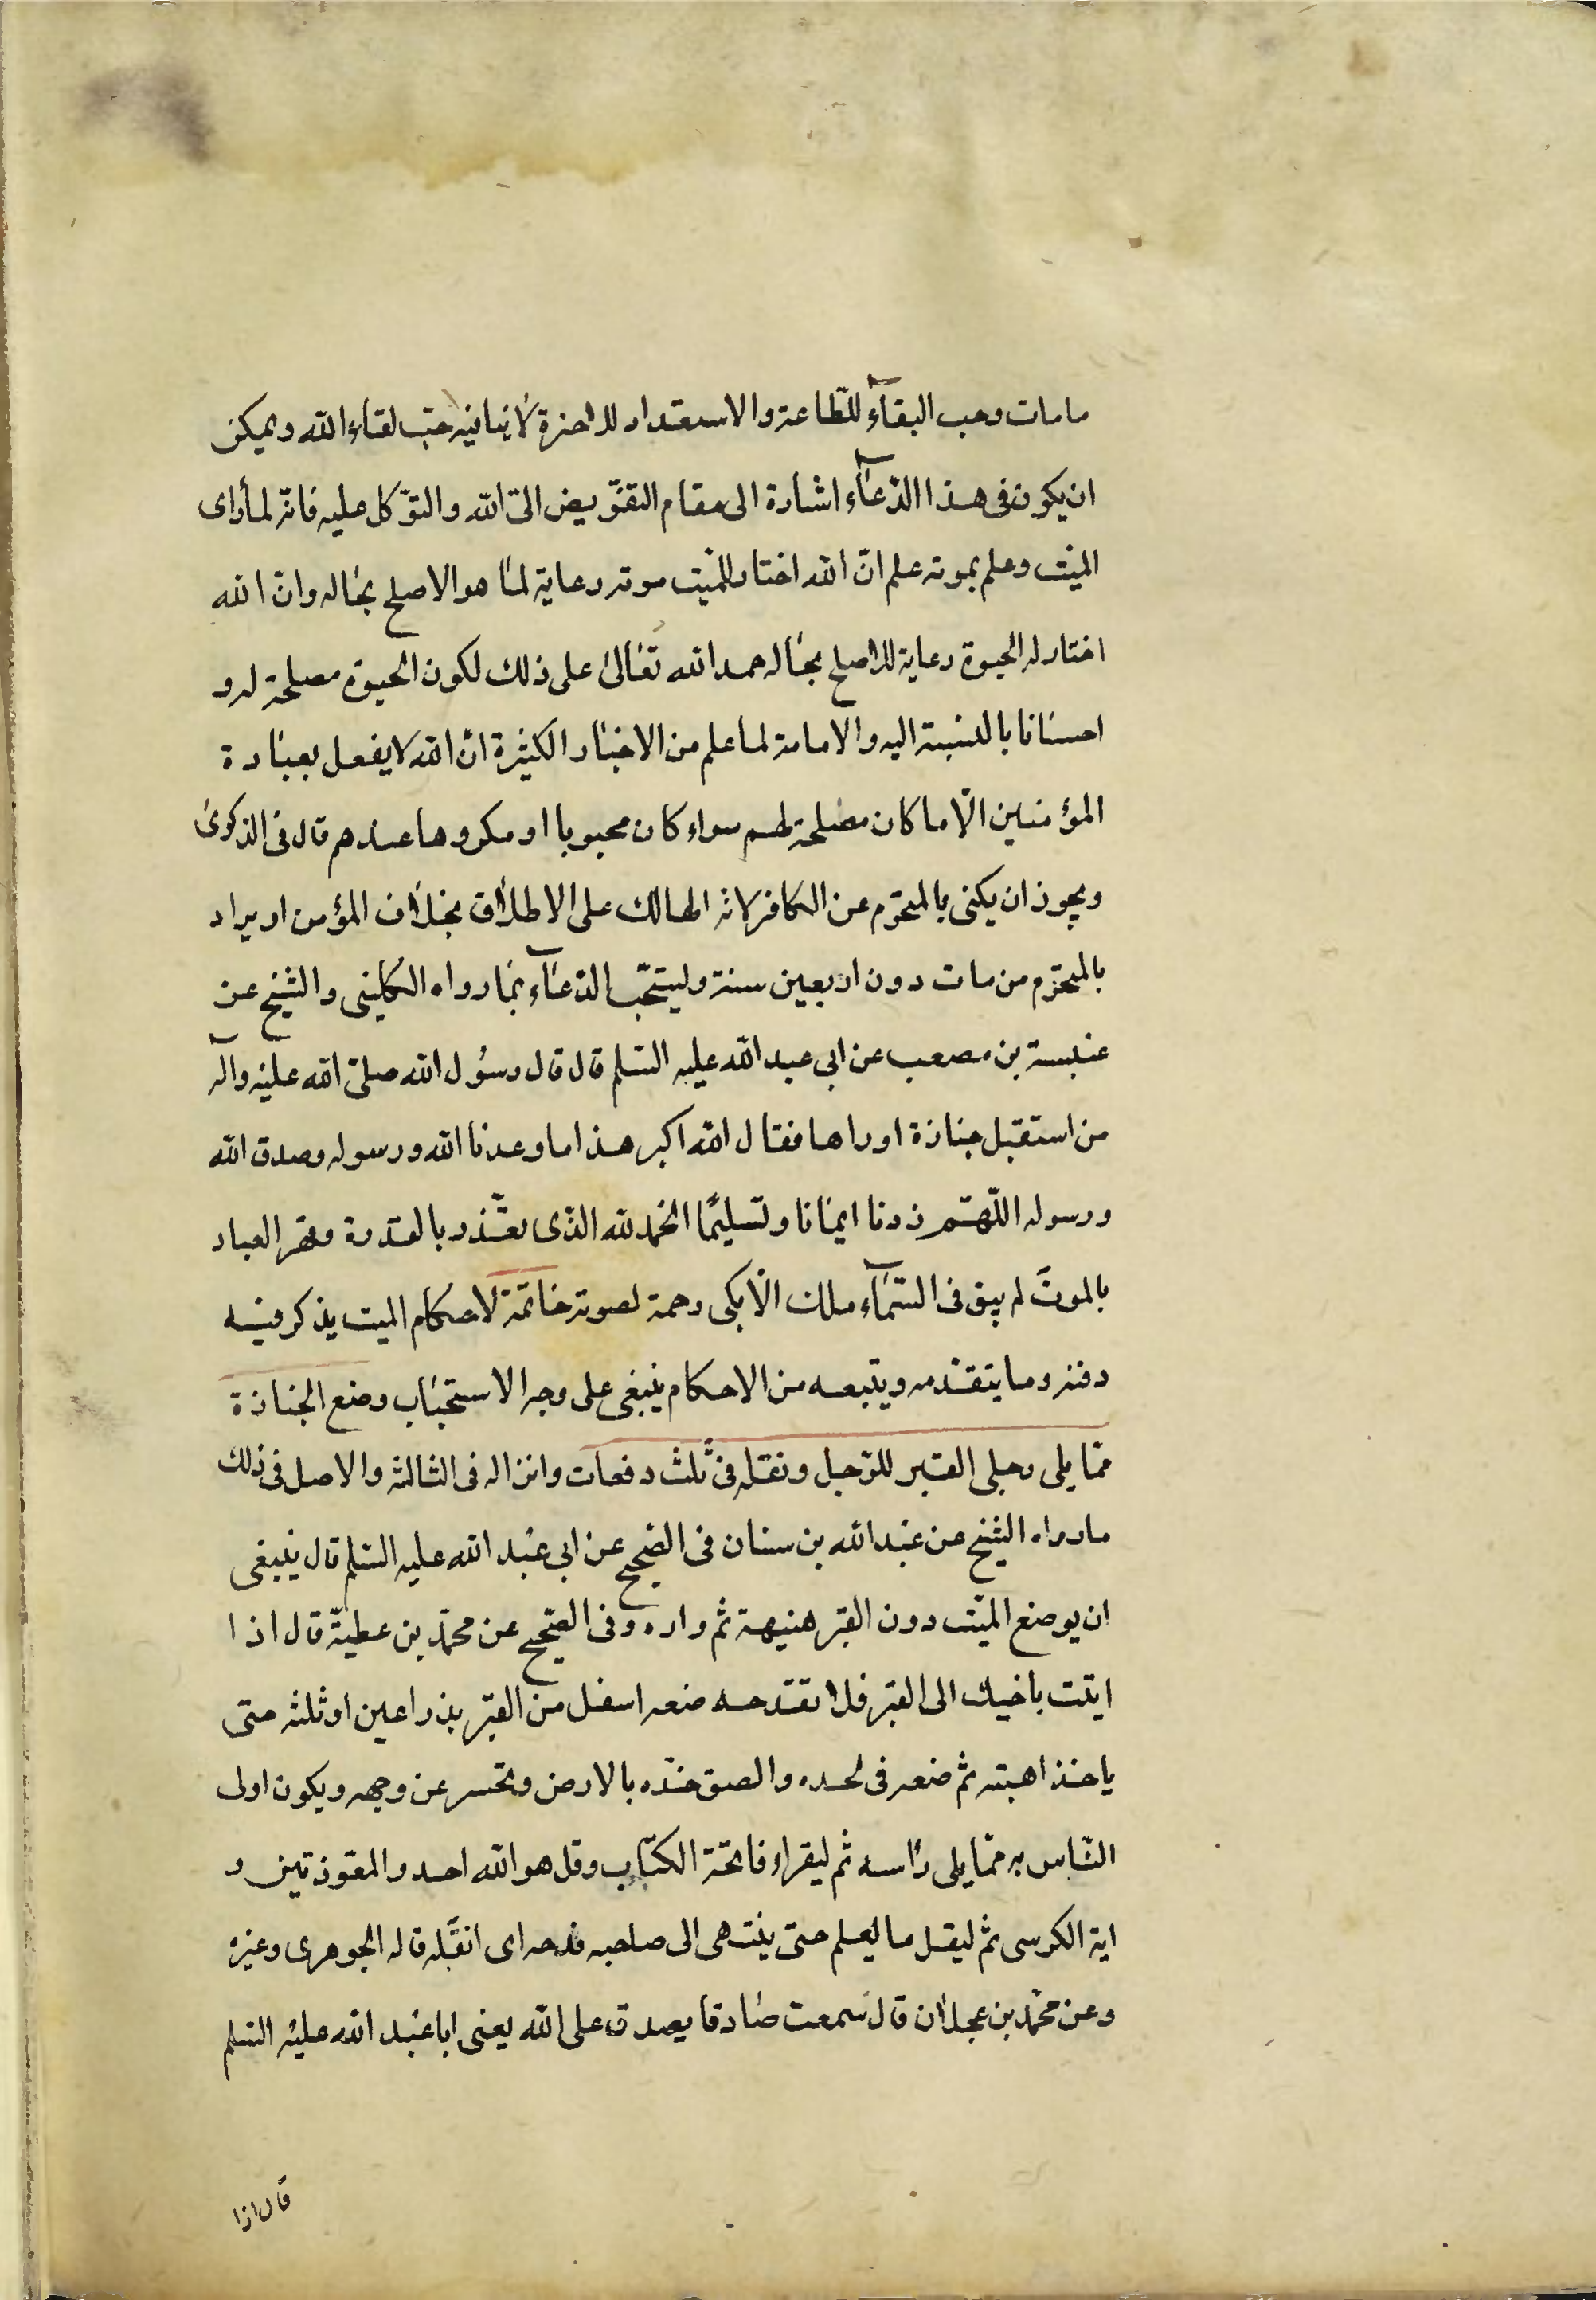 ما مات وحب البقآء للطاعة والاستعداد للاخرة لا ينافيه حب لقاء الله ويمكن
ان يكون فى هذا الدعآء اشارة الى مقام التفويض الى الله والتوكل عليه فانه لما راى
الميت وعلم بموته علم ان الله اختار للميت موته رعاية لما هو الاصلح بحاله وان الله
اختار له الحيوة رعاية للاصلح بحاله حمد الله تعالى على ذلك لكون الحيوة مصلحة له و
احسانا بالنسبة اليه والا مامة لما علم من الاخبار الكثيرة ان الله لا يفعل بعبادة
المؤمنين الا ما كان مصلحة لهم سواء كان محبوبا او مكروها عندهم قال فى الذكرى
ويجوز ان يكنى بالمخترم عن الكافر لانه الهالك على الاطلاق بخلاف المؤمن او يراد
بالمخترم من مات دون اربعين سنة وليستحب الدعآء بما رواه الكلينى والشيخ عن
عنبسة بن مصعب عن ابى عبد الله عليه السلم قال قال رسول الله صلى الله عليه وآله
من استقبل جنازة او راها فقال الله اكبر هذا ما وعدنا الله ورسوله وصدق الله
ورسوله اللهم زدنا ايمانا وتسليما الحمد لله الذى تعزز بالقدرة وقهر العباد
بالموت لم يبق فى السمآء ملك الا بكى رحمة لصوته خاتمة لاحكام الميت يذكر فيه
دفنه وما يتقدمه ويتبعه من الاحكام ينبغى على وجه الاستحباب وضع الجنازة
مما يلى رجلى القبر للرجل ونقله فى ثلث دفعات وانزاله فى الثالثة والاصل فى ذلك
ما رواه الشيخ عن عبد الله بن سنان فى الصحيح عن ابى عبد الله عليه السلم قال ينبغى
ان يوضع الميت دون القبر هنيهة ثم واره وفى الصحيح عن محمد بن عطية قال اذا
اتيت باخيك الى القبر فلا تفدحه ضعه اسفل من القبر بذراعين او ثلثة حتى
ياخذ اهبته ثم ضعه فى لحده والصق خده بالارض وتحسر عن وجهه ويكون اولى
الناس به مما يلى راسه ثم ليقرا فاتحة الكتاب وقل هو الله احد والمعوذتين و
اية الكرسى ثم ليقل ما يعلم حتى ينتهى الى صاحبه فدحه اى اثقله قاله الجوهرى وغيره
وعن محمد بن عجلان قال سمعت صادقا يصدق على الله يعنى ابا عبد الله عليه السلم
قال اذا